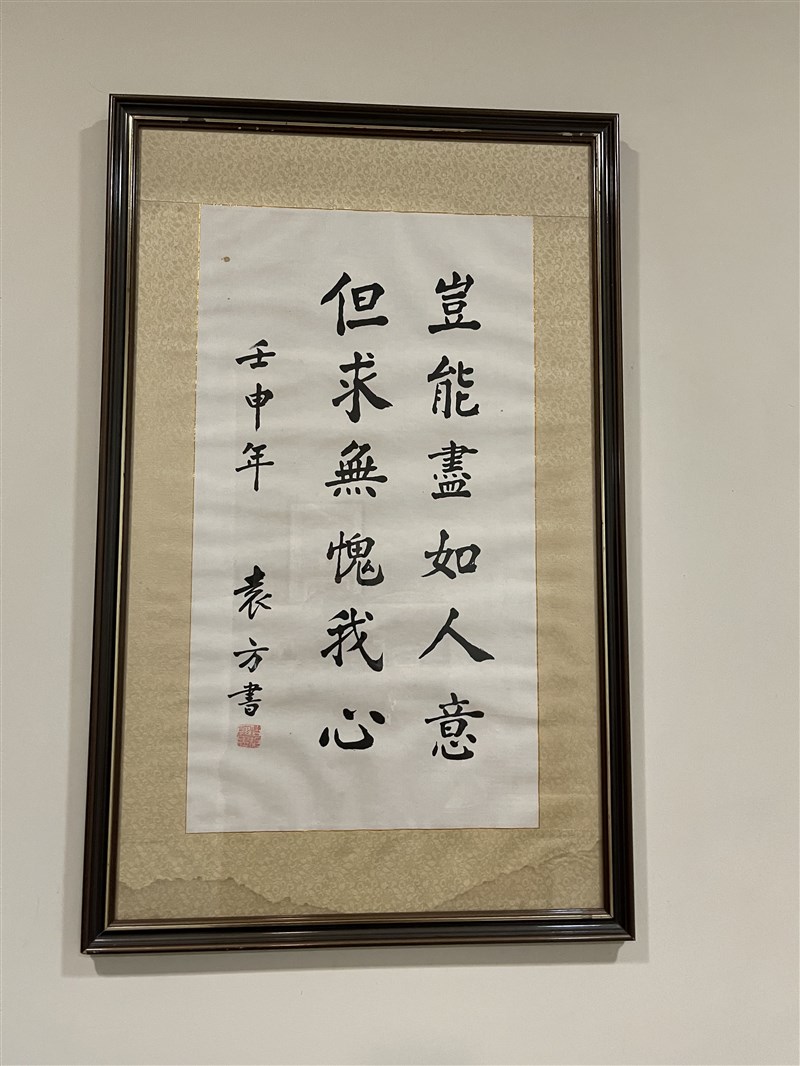 豈能盡如人意
但求無愧我心
壬申年 袁方書